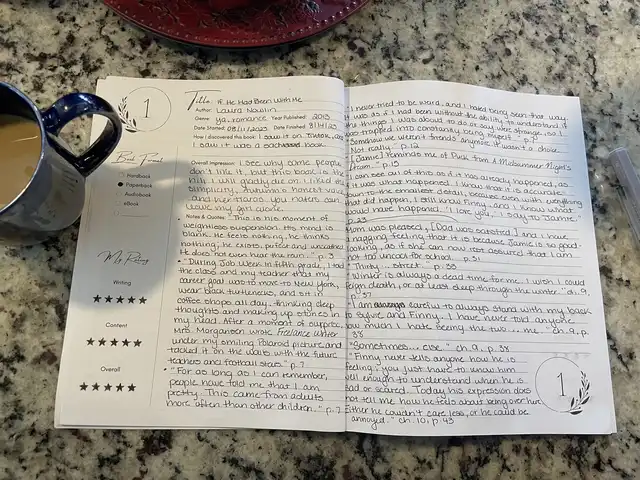 1
Title: If He Had Been With Me
Author: Laura Nowlin
Genre: ya, romance Year Published: 2013
Date Started: 08/11/2023 Date Finished: 8/14/23
How I discovered this book: I saw it on TikTok, and
I saw it was a sad book
Book Format
Hardback
Paperback
Audiobook
eBook
My Rating
Writing
★★★★★
Content
★★★★★
Overall
★★★★★
Overall Impression: I see why some people
don't like it, but this book is the
hill I will gladly die on. I liked its
simplicity, Autumn's honest voice
and her narration. You haters can
leave my girl alone.
Notes & Quotes: "This is his moment of
weightless suspension. His mind is
blank. He feels nothing, he thinks
nothing, he exists, perfect and unscathed
He does not even hear the rain." p. 3
• "During Job Week in fifth grade, I told
the class and my teacher that my
career goal was to move to New York,
wear black turtlenecks, and sit in
coffee shops all day, thinking deep
thoughts and making up stories in
my head. After a moment of surprise,
Mrs. Morganson wrote Freelance Writer
under my smiling Polaroid picture and
tacked it on the walls with the future
teachers and football stars." p. 7
• "For as long as I can remember,
people have told me that I am
pretty. This came from adults
more often than other children." p. 7
"I never tried to be weird, and I hated being seen that way.
It was as if I had been born without the ability to understand if
the things I was about to do or say were strange, so I
was trapped into constantly being myself." p. 7
"Somehow we weren't friends anymore. It wasn't a choice.
Not really." p. 12
"[Jamie] reminds me of Puck from A Midsummer Night's
Dream." p. 15
"I can see all of this as if it has already happened, as
it was what happened. I know that it is accurate
down to the smallest detail, because even with everything
that did happen, I still know Finny, and I know what
would have happened. "I love you," I say to Jamie."
p. 23
Mom was pleased, [Dad was satisfied] and I have
a nagging feeling that it is because Jamie is so good-
looking, as if she can now rest assured that I am
not too uncool for school. p. 31
"Thirty... street." p. 35
"Winter is always a dead time for me. I wish I could
feign death, or at least sleep through the winter." ch. 9,
p. 37
"I am careful to always stand with my back
to Sylvie and Finny. I have never told anyone
how much I hate seeing the two... me." ch. 9, p.
38
"Sometimes... else." ch. 9, p. 38
"Finny never tells anyone how he is
feeling; you just have to know him
well enough to understand when he is
sad or scared. Today his expression does
not tell me how he feels about being over here.
Either he couldn't care less, or he could be
annoyed." ch. 10, p. 43
1